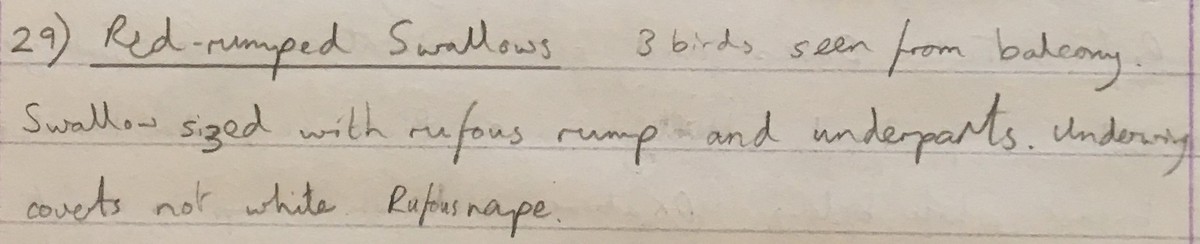 29) Red-rumped Swallows 3 birds seen from balcony.
Swallow sized with rufous rump and underparts. Underwing
coverts not white Rufous nape.